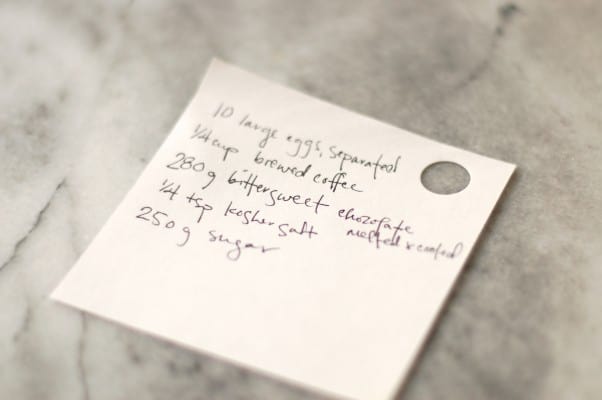 10 large eggs, separated
1/4 cup brewed coffee
280 g bittersweet chocolate
melted & cooled
1/4 tsp kosher salt
250 g sugar